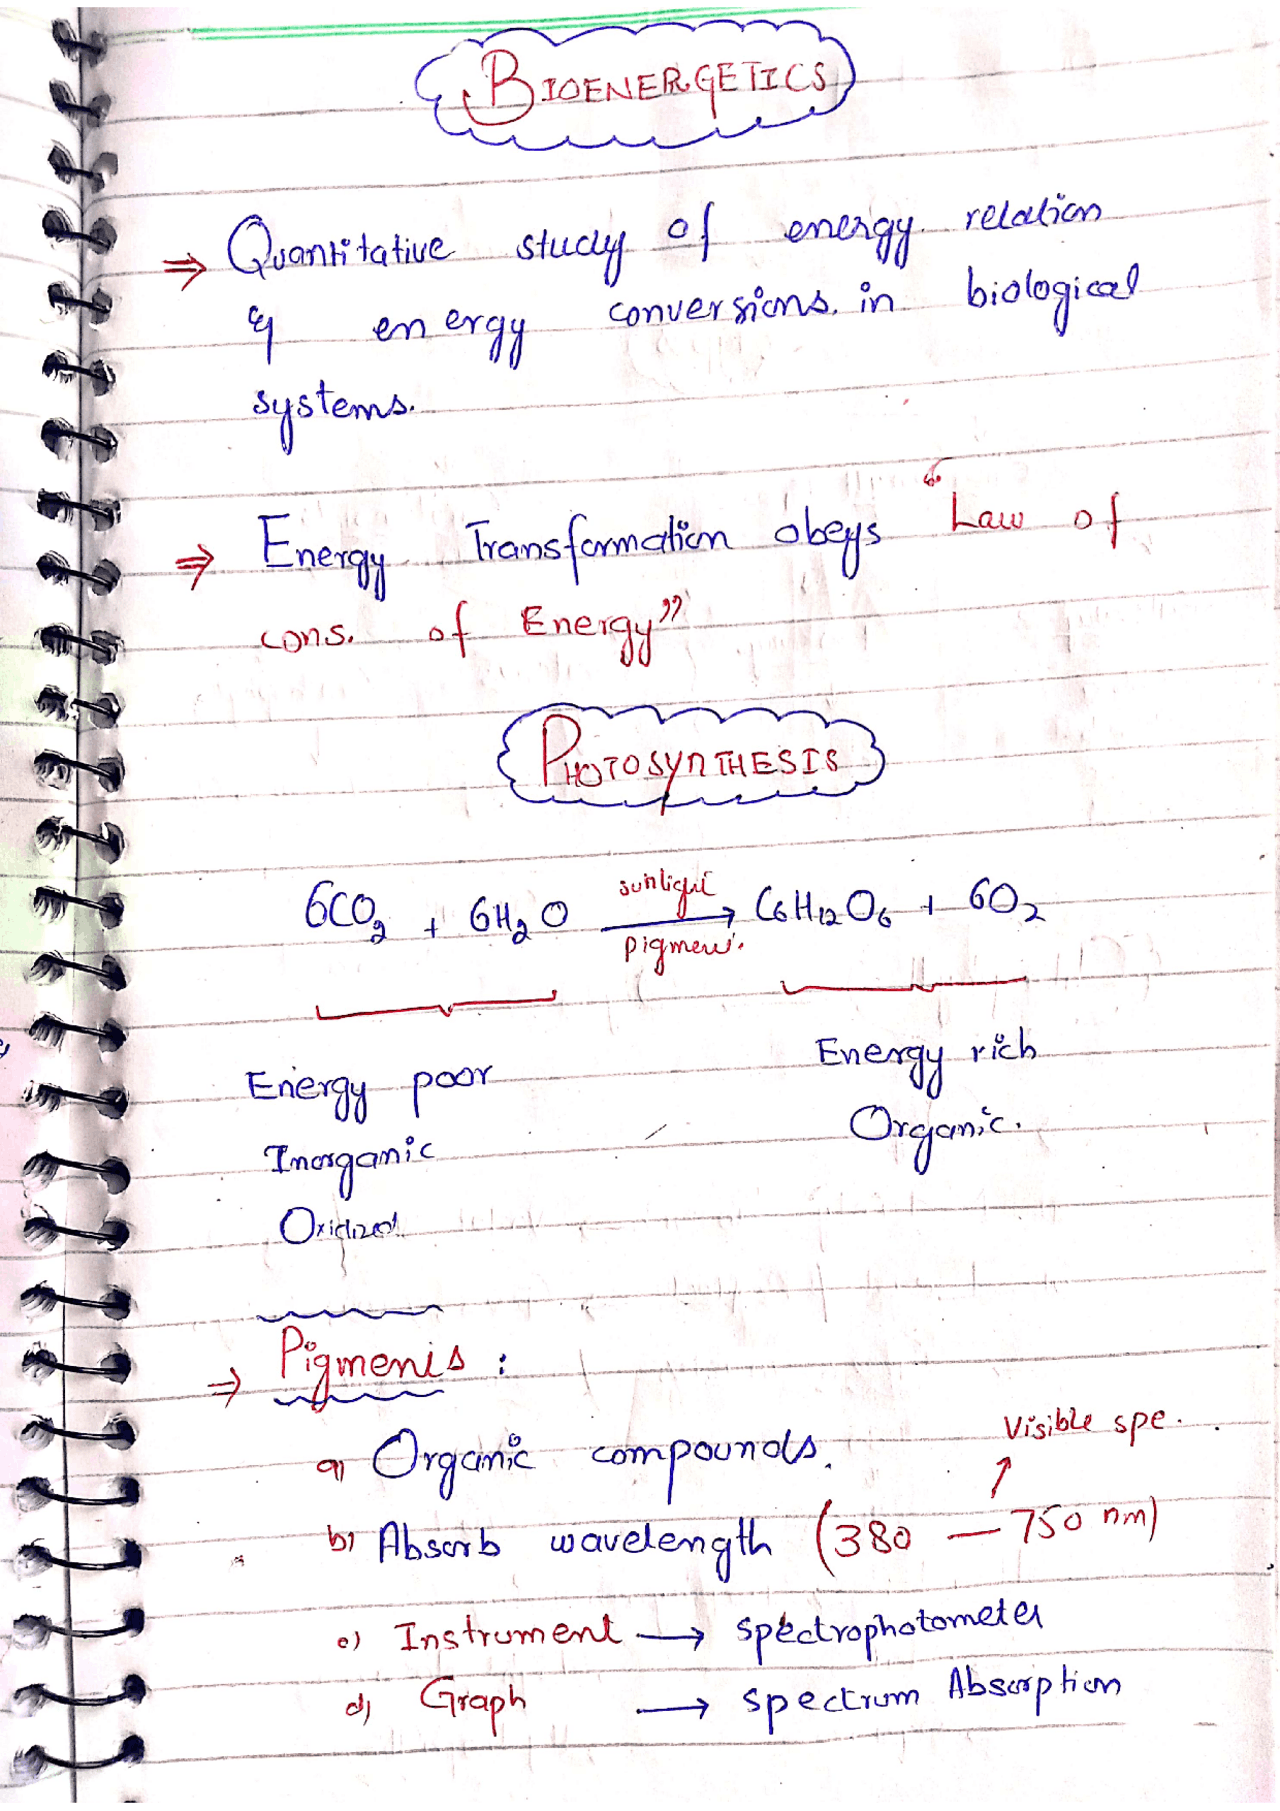 BIOENERGETICS
⇒ Quantitative study of energy relation
& energy conversions. in biological
systems.
⇒ Energy Transformation obeys "Law of
cons. of Energy"
PHOTOSYNTHESIS
sunlight
6CO₂ + 6H₂O → C₆H₁₂O₆ + 6O₂
pigment.
Energy poor Energy rich
Inorganic Organic.
Oxidized
→ Pigments :
Visible spe.
a) Organic compounds.
b) Absorb wavelength (380 — 750 nm)
c) Instrument → spectrophotometer
d) Graph → spectrum Absorption